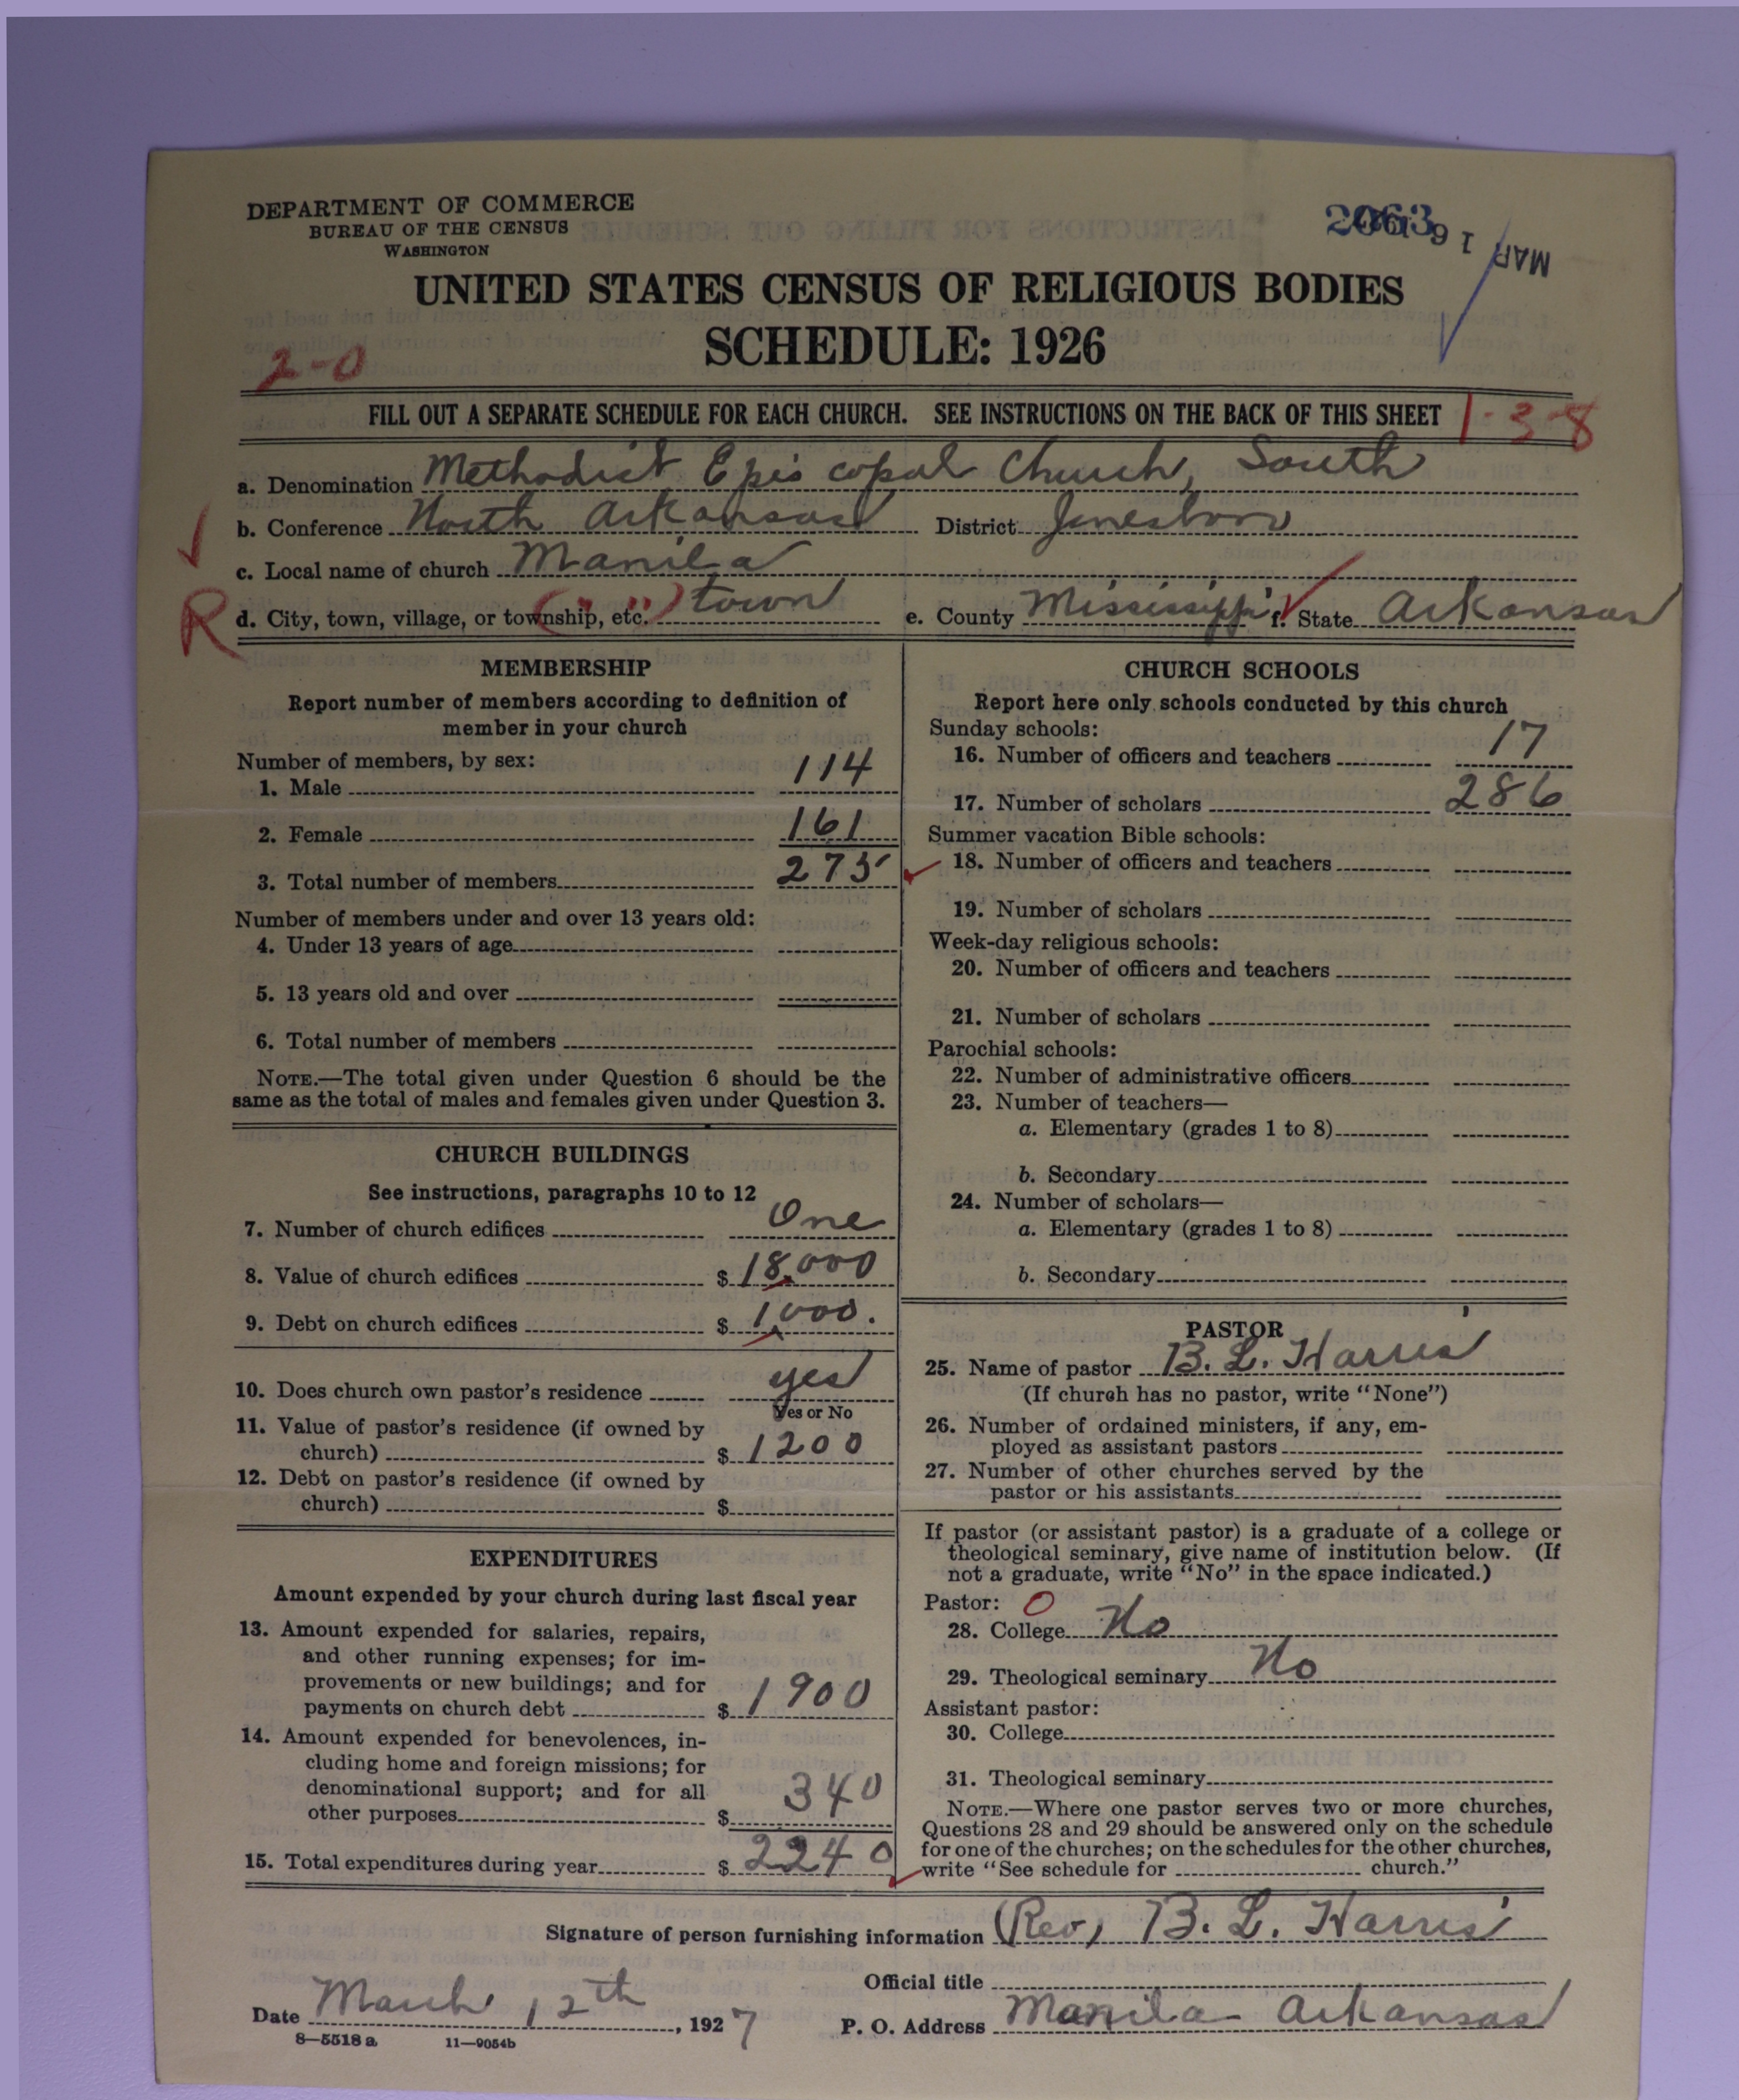 DEPARTMENT OF COMMERCE
BUREAU OF THE CENSUS
WASHINGTON
2063
MAR 16
UNITED STATES CENSUS OF RELIGIOUS BODIES
SCHEDULE: 1926
2-0
FILL OUT A SEPARATE SCHEDULE FOR EACH CHURCH. SEE INSTRUCTIONS ON THE BACK OF THIS SHEET
1-3-8
a. Denomination Methodist Episcopal Church, South
b. Conference North Arkansas District Jonesboro
c. Local name of church Manila
R d. City, town, village, or township, etc. (" ") town e. County Mississippi f. State Arkansas
MEMBERSHIP
Report number of members according to definition of
member in your church
Number of members, by sex:
1. Male 114
2. Female 161
3. Total number of members 275
Number of members under and over 13 years old:
4. Under 13 years of age
5. 13 years old and over
6. Total number of members
NOTE.—The total given under Question 6 should be the
same as the total of males and females given under Question 3.
CHURCH BUILDINGS
See instructions, paragraphs 10 to 12
7. Number of church edifices One
8. Value of church edifices $ 18,000
9. Debt on church edifices $ 1,000.
10. Does church own pastor's residence yes
Yes or No
11. Value of pastor's residence (if owned by
church) $ 1200
12. Debt on pastor's residence (if owned by
church) $
EXPENDITURES
Amount expended by your church during last fiscal year
13. Amount expended for salaries, repairs,
and other running expenses; for im-
provements or new buildings; and for
payments on church debt $ 1900
14. Amount expended for benevolences, in-
cluding home and foreign missions; for
denominational support; and for all
other purposes $ 340
15. Total expenditures during year $ 2240
CHURCH SCHOOLS
Report here only schools conducted by this church
Sunday schools:
16. Number of officers and teachers 17
17. Number of scholars 286
Summer vacation Bible schools:
18. Number of officers and teachers
19. Number of scholars
Week-day religious schools:
20. Number of officers and teachers
21. Number of scholars
Parochial schools:
22. Number of administrative officers
23. Number of teachers—
a. Elementary (grades 1 to 8)
b. Secondary
24. Number of scholars—
a. Elementary (grades 1 to 8)
b. Secondary
PASTOR
25. Name of pastor B. L. Harris
(If church has no pastor, write "None")
26. Number of ordained ministers, if any, em-
ployed as assistant pastors
27. Number of other churches served by the
pastor or his assistants
If pastor (or assistant pastor) is a graduate of a college or
theological seminary, give name of institution below. (If
not a graduate, write "No" in the space indicated.)
Pastor: O
28. College No
29. Theological seminary No
Assistant pastor:
30. College
31. Theological seminary
NOTE.—Where one pastor serves two or more churches,
Questions 28 and 29 should be answered only on the schedule
for one of the churches; on the schedules for the other churches,
write "See schedule for church."
Signature of person furnishing information (Rev) B. L. Harris
Official title
Date March 12th, 1927 P. O. Address Manila Arkansas
8—5518 a 11—9054b